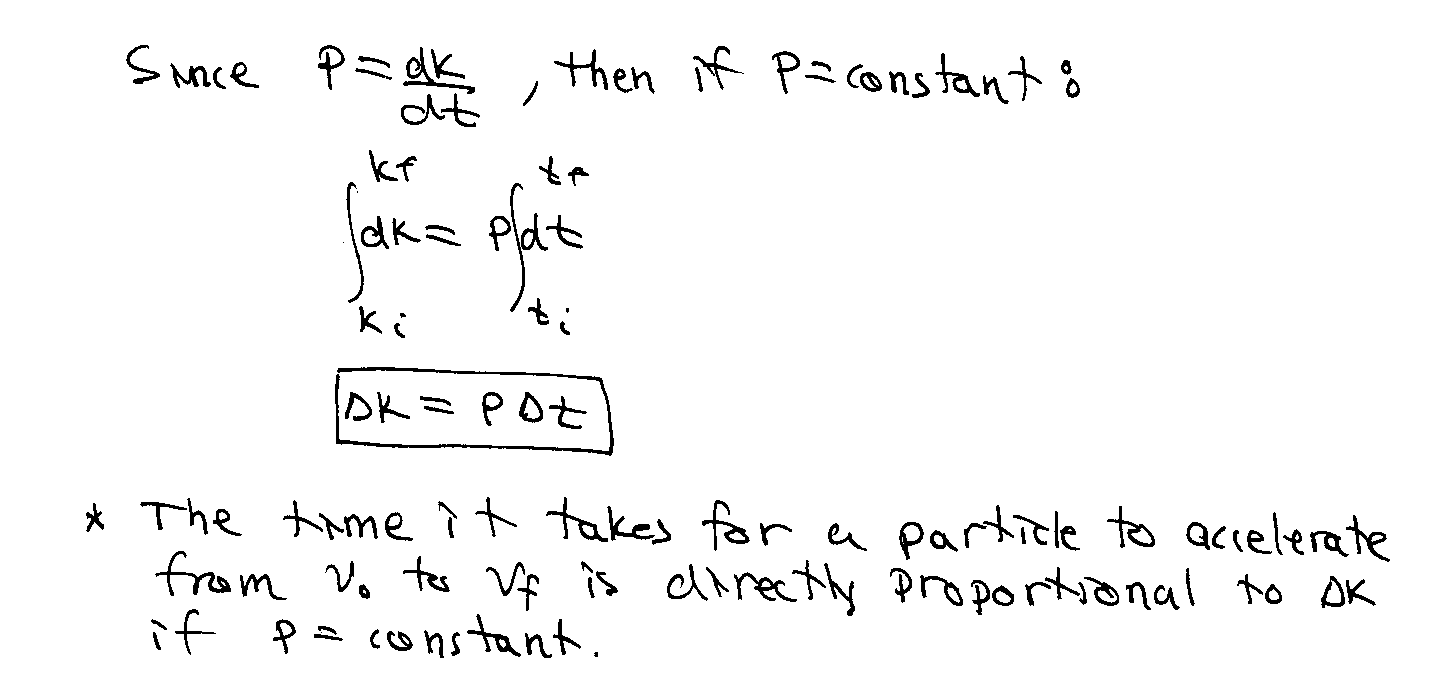 Since P = dK/dt , then if P = constant :
∫_{Ki}^{Kf} dK = P ∫_{ti}^{tf} dt
ΔK = P Δt
* The time it takes for a particle to accelerate
from v₀ to vf is directly proportional to ΔK
if P = constant.